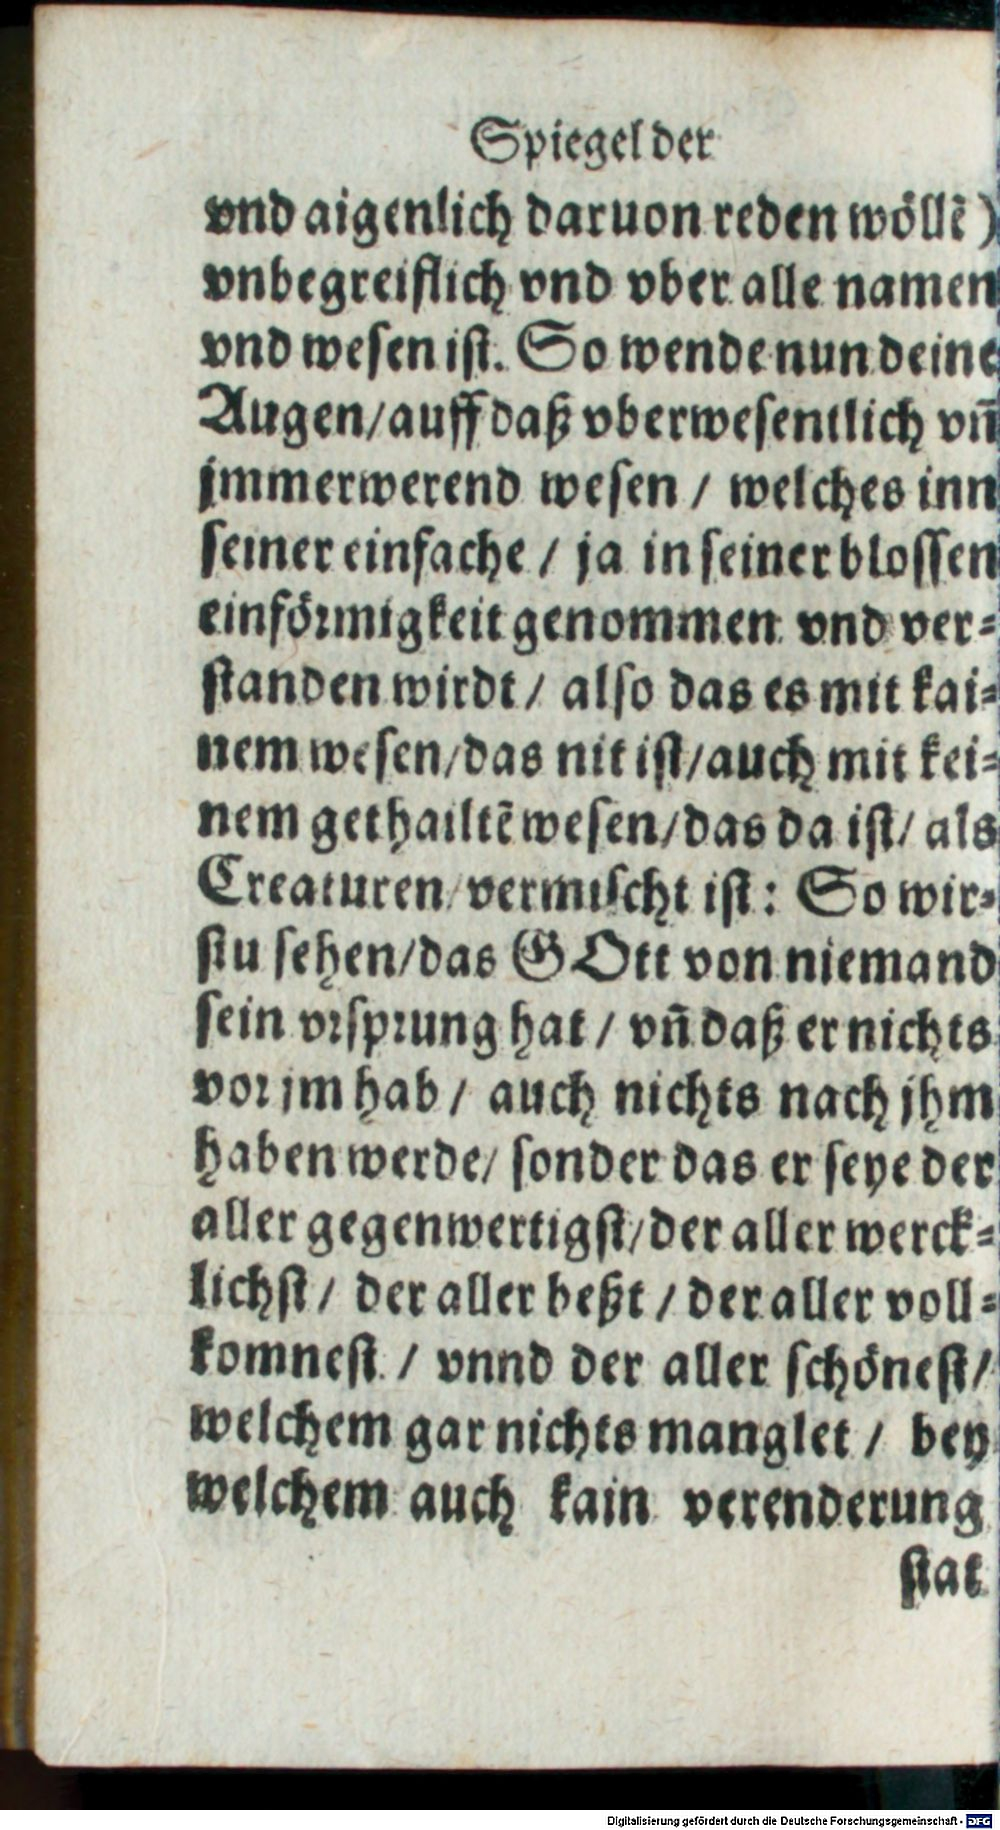 Spiegel der
vnd aigenlich daruon reden wöllē)
vnbegreiflich vnd vber alle namen
vnd wesen ist. So wende nun deine
Augen/auff daß vberwesentlich vn̄
jmmerwerend wesen / welches inn
seiner einfache / ja in seiner blossen
einförmigkeit genommen vnd ver-
standen wirdt / also das es mit kai-
nem wesen/das nit ist/auch mit kei-
nem gethailtē wesen/das da ist/ als
Creaturen vermischt ist: So wir-
stu sehen/das GOtt von niemand
sein vrsprung hat / vn̄ daß er nichts
vor jm hab / auch nichts nach jhm
haben werde/ sonder das er seye der
aller gegenwertigst/der aller werck-
lichst / der aller beßt / der aller voll-
komnest / vnnd der aller schönest/
welchem gar nichts manglet / bey
welchem auch kain verenderung
stat
Digitalisierung gefördert durch die Deutsche Forschungsgemeinschaft - DFG